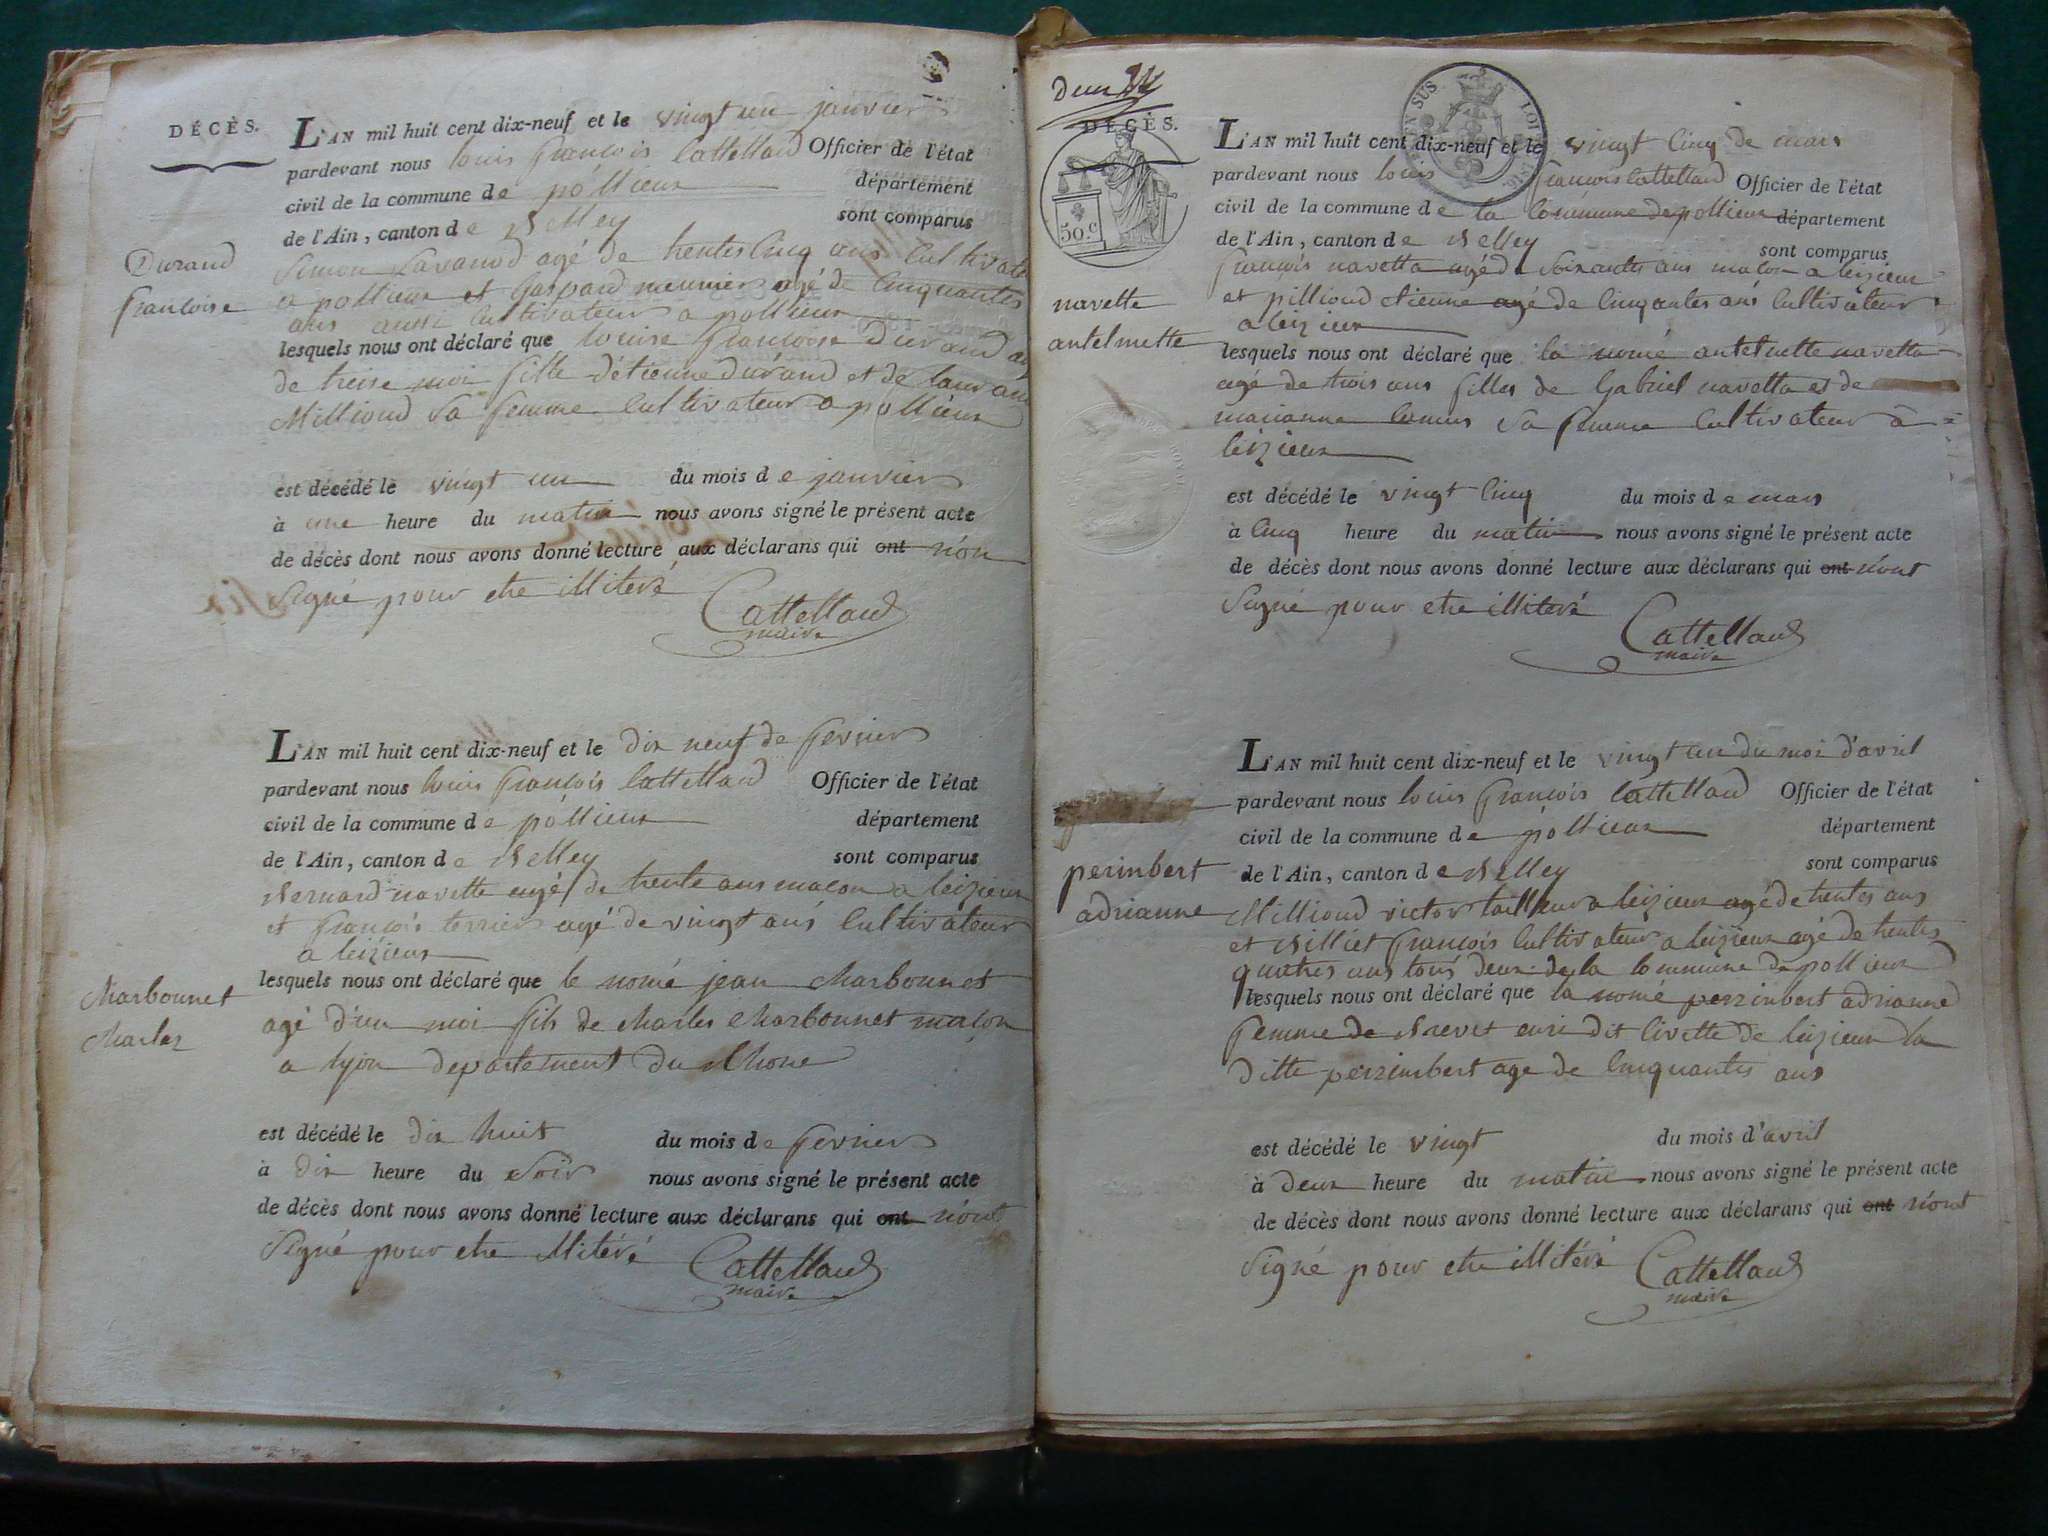 DÉCÈS.
L'AN mil huit cent dix-neuf et le vingt un janvier
pardevant nous louis françois Cattelland Officier de l'état
civil de la commune de pollieux département
de l'Ain, canton de Belley sont comparus
Simon Lavanod agé de trentes cinq ans cultivateur
a pollieux et Gaspard meunier agé de cinquantes
ans aussi cultivateur a pollieux
lesquels nous ont déclaré que louise françoise Durand
de treise moi fille d'étienne durand et de
Milliond Sa femme cultivateur a pollieux
Durand
françoise
est décédé le vingt un du mois de janvier
à une heure du matin nous avons signé le présent acte
de décès dont nous avons donné lecture aux déclarans qui ont n'on
Signé pour etre illiteré
Cattelland
maire
L'AN mil huit cent dix-neuf et le dix neuf de fevrier
pardevant nous louis françois Cattelland Officier de l'état
civil de la commune de pollieux département
de l'Ain, canton de Belley sont comparus
Bernard navette agé de trente ans macon a leizieux
et françois terrier agé de vingt ans cultivateur
a leizieux
lesquels nous ont déclaré que le nomé jean charbonnet
agé d'un moi fils de charles charbonnet macon
a lyon departement du Rhone
charbonnet
charles
est décédé le dix huit du mois de fevrier
à dix heure du Soir nous avons signé le présent acte
de décès dont nous avons donné lecture aux déclarans qui ont n'ont
Signé pour etre illitéré
Cattelland
maire
deux
DÉCÈS.
50.C
EN SUS
L'AN mil huit cent dix-neuf et le vingt cinq de mars
pardevant nous louis françois Cattelland Officier de l'état
civil de la commune de la commune de pollieux département
de l'Ain, canton de Belley sont comparus
françois navetta agé de Soixantes ans macon a leizieux
et pilliond etienne agé de cinqantes ans cultivateur
a leizieux
lesquels nous ont déclaré que la nomé antelmette navetta
agé de trois ans filles de Gabriel navetta et de
marianne Sa femme cultivateur à
leizieux
navette
antelmette
est décédé le vingt cinq du mois de mars
à cinq heure du matin nous avons signé le présent acte
de décès dont nous avons donné lecture aux déclarans qui ont n'ont
Signé pour etre illiteré
Cattelland
maire
L'AN mil huit cent dix-neuf et le vingt un du moi d'avril
pardevant nous louis françois Cattelland Officier de l'état
civil de la commune de pollieux département
de l'Ain, canton de Belley sont comparus
Milliond victor tailleur a leizieux agé de trentes ans
et Billiet françois cultivateur a leizieux agé de trentes
quatres ans tous deux de la commune de pollieux
lesquels nous ont déclaré que la nomé perrinbert adrianne
femme de dit livette de leizieux la
ditte perrinbert age de cinquantes ans
perinbert
adrianne
est décédé le vingt du mois d'avril
à deux heure du matin nous avons signé le présent acte
de décès dont nous avons donné lecture aux déclarans qui ont n'ont
Signé pour etre illitéré
Cattelland
maire